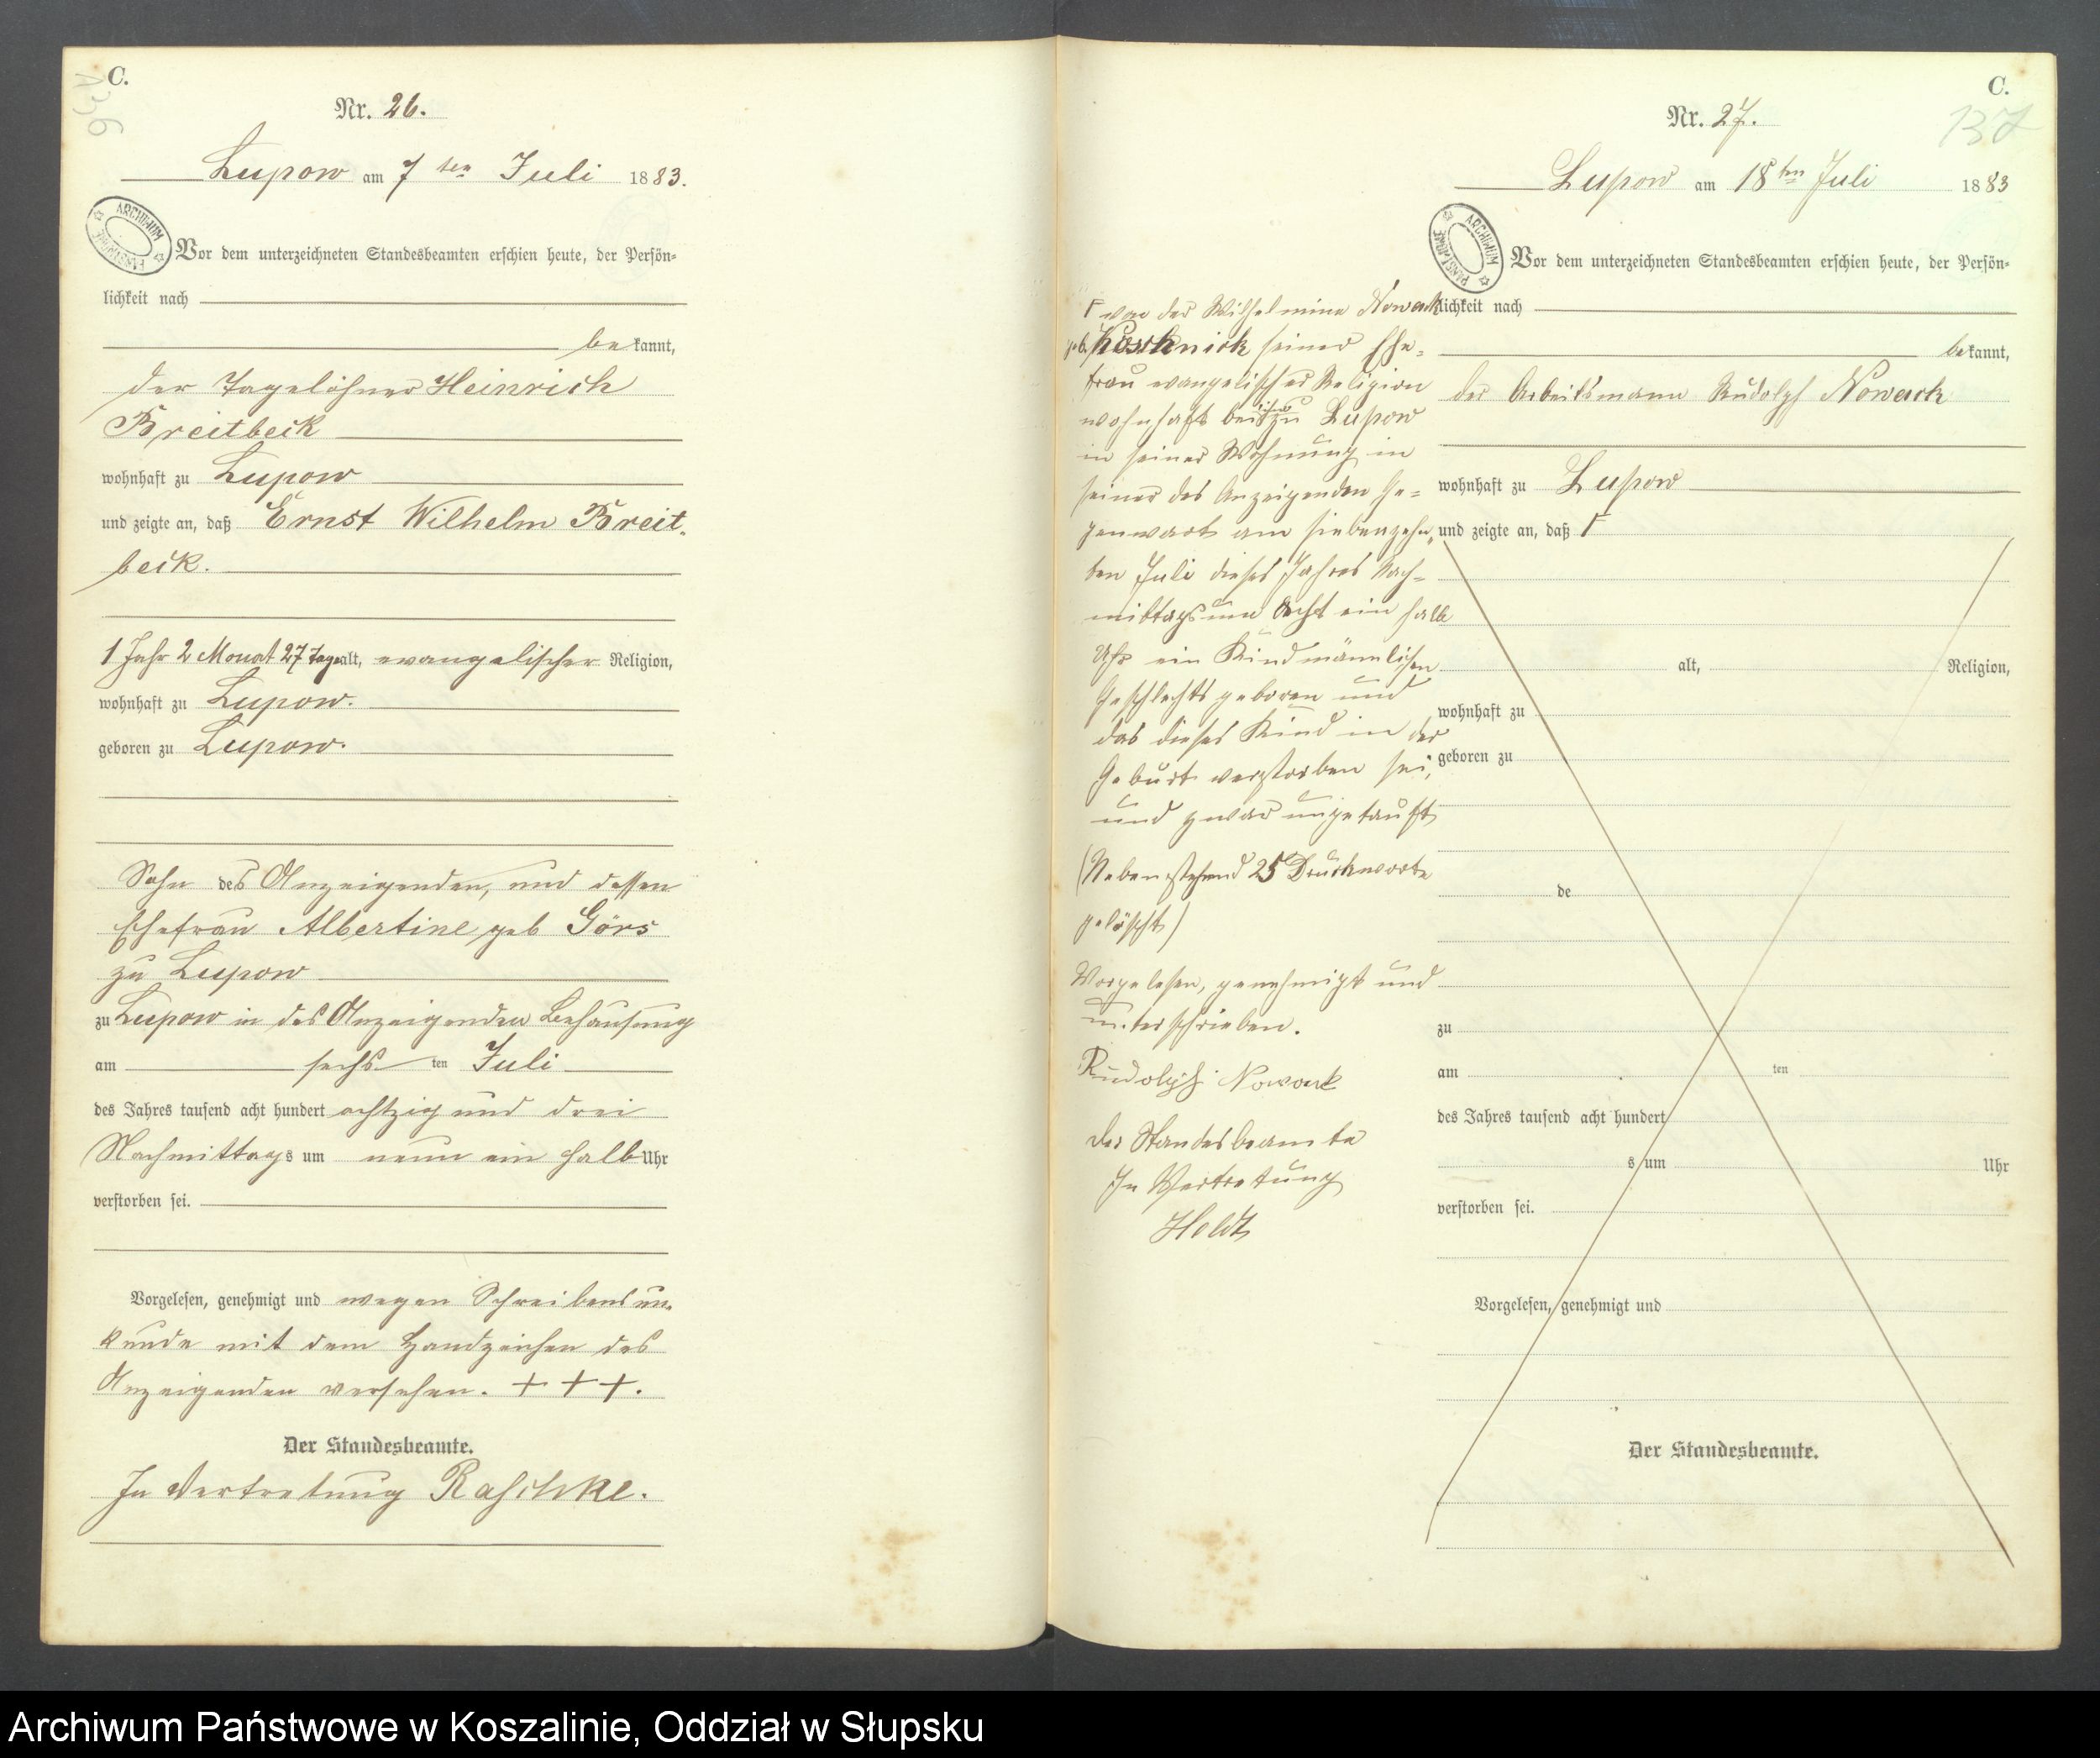 C.
136
Nr. 26.
Lupow am 7 ten Juli 1883.
ARCHIWUM PAŃSTWOWE
Vor dem unterzeichneten Standesbeamten erschien heute, der Persön-
lichkeit nach
bekannt,
der Tagelöhner Heinrich
Breitbeck
wohnhaft zu Lupow
und zeigte an, daß Ernst Wilhelm Breit-
beck.
1 Jahr 2 Monat 27 Tage alt, evangelischer Religion,
wohnhaft zu Lupow.
geboren zu Lupow.
Sohn des Anzeigenden, und dessen
Ehefrau Albertine geb Görs
zu Lupow
zu Lupow in des Anzeigenden Behausung
am sechs ten Juli
des Jahres tausend acht hundert achtzig und drei
Nachmittags um neun ein halb Uhr
verstorben sei.
Vorgelesen, genehmigt und wegen Schreibensun-
kunde mit dem Handzeichen des
Anzeigenden versehen. + + +.
Der Standesbeamte.
In Vertretung Raschke.
C.
137
Nr. 27.
Lupow am 18ten Juli 1883
ARCHIWUM PAŃSTWOWE
Vor dem unterzeichneten Standesbeamten erschien heute, der Persön-
lichkeit nach
bekannt,
der Arbeitsmann Rudolph Nowack
wohnhaft zu Lupow
und zeigte an, daß Γ
alt, Religion,
wohnhaft zu
geboren zu
de
zu
am ten
des Jahres tausend acht hundert
s um Uhr
verstorben sei.
Vorgelesen, genehmigt und
Der Standesbeamte.
Γ von der Wilhelmine Nowack
geb. seiner Ehe-
frau evangelischer Religion
wohnhaft bei ihm zu Lupow
in seiner Wohnung in
seiner des Anzeigenden Ge-
genwart am siebenzehn-
ten Juli dieses Jahres Nach-
mittags um Acht ein halb
Uhr ein Kind männlichen
Geschlechts geboren und
das dieses Kind in der
Geburt verstorben sei,
und zwar ungetauft
(Nebenstehend 25 Druckworte
gelöscht)
Vorgelesen, genehmigt und
unterschrieben.
Rudolph Nowack
Der Standesbeamte
In Vertretung
Holdt
Archiwum Państwowe w Koszalinie, Oddział w Słupsku